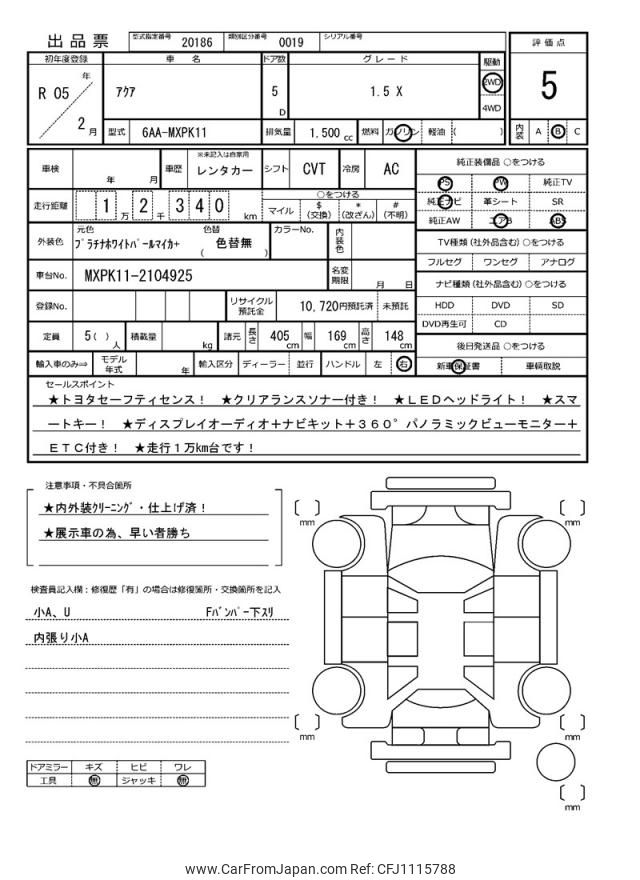 出品票 型式指定番号 20186 類別区分番号 0019 シリアル番号
評価点
5
初年度登録 車名 ドア数 グレード 駆動
R 05 年 2月 アクア 5 D 1.5 X 2WD
4WD
型式 6AA-MXPK11 排気量 1.500 cc 燃料 ガソリン 軽油 ( )
内装 A B C
車検 年 月 車歴 ※未記入は自家用 レンタカー シフト CVT 冷房 AC
走行距離 1万 2千 3 4 0 km
○をつける
マイル $(交換) *(改ざん) #(不明)
外装色 元色 プラチナホワイトパールマイカ+ 色替 ( 色替無 ) カラーNo. 内装色
車台No. MXPK11-2104925 名変期限 月 日
登録No. リサイクル預託金 10,720円預託済 未預託
定員 5( )人 積載量 kg 諸元 長さ 405cm 幅 169cm 高さ 148cm
輸入車のみ⇒ モデル年式 年 輸入区分 ディーラー 並行 ハンドル 左 右
純正装備品 ○をつける
PS PW 純正TV
純正ナビ 革シート SR
純正AW エアB ABS
TV種類(社外品含む)○をつける
フルセグ ワンセグ アナログ
ナビ種類(社外品含む)○をつける
HDD DVD SD
DVD再生可 CD
後日発送品 ○をつける
新車保証書 車輌取説
セールスポイント
★トヨタセーフティセンス! ★クリアランスソナー付き! ★LEDヘッドライト! ★スマ
ートキー! ★ディスプレイオーディオ+ナビキット+360°パノラミックビューモニター+
ETC付き! ★走行1万km台です!
注意事項・不具合箇所
★内外装クリーニング・仕上げ済!
★展示車の為、早い者勝ち
検査員記入欄:修復歴「有」の場合は修復箇所・交換箇所を記入
小A、U Fバンパー下スリ
内張り小A
ドアミラー キズ ヒビ ワレ
工具 無 ジャッキ 無
mm
mm
mm
mm
mm
www.CarFromJapan.com Ref: CFJ1115788